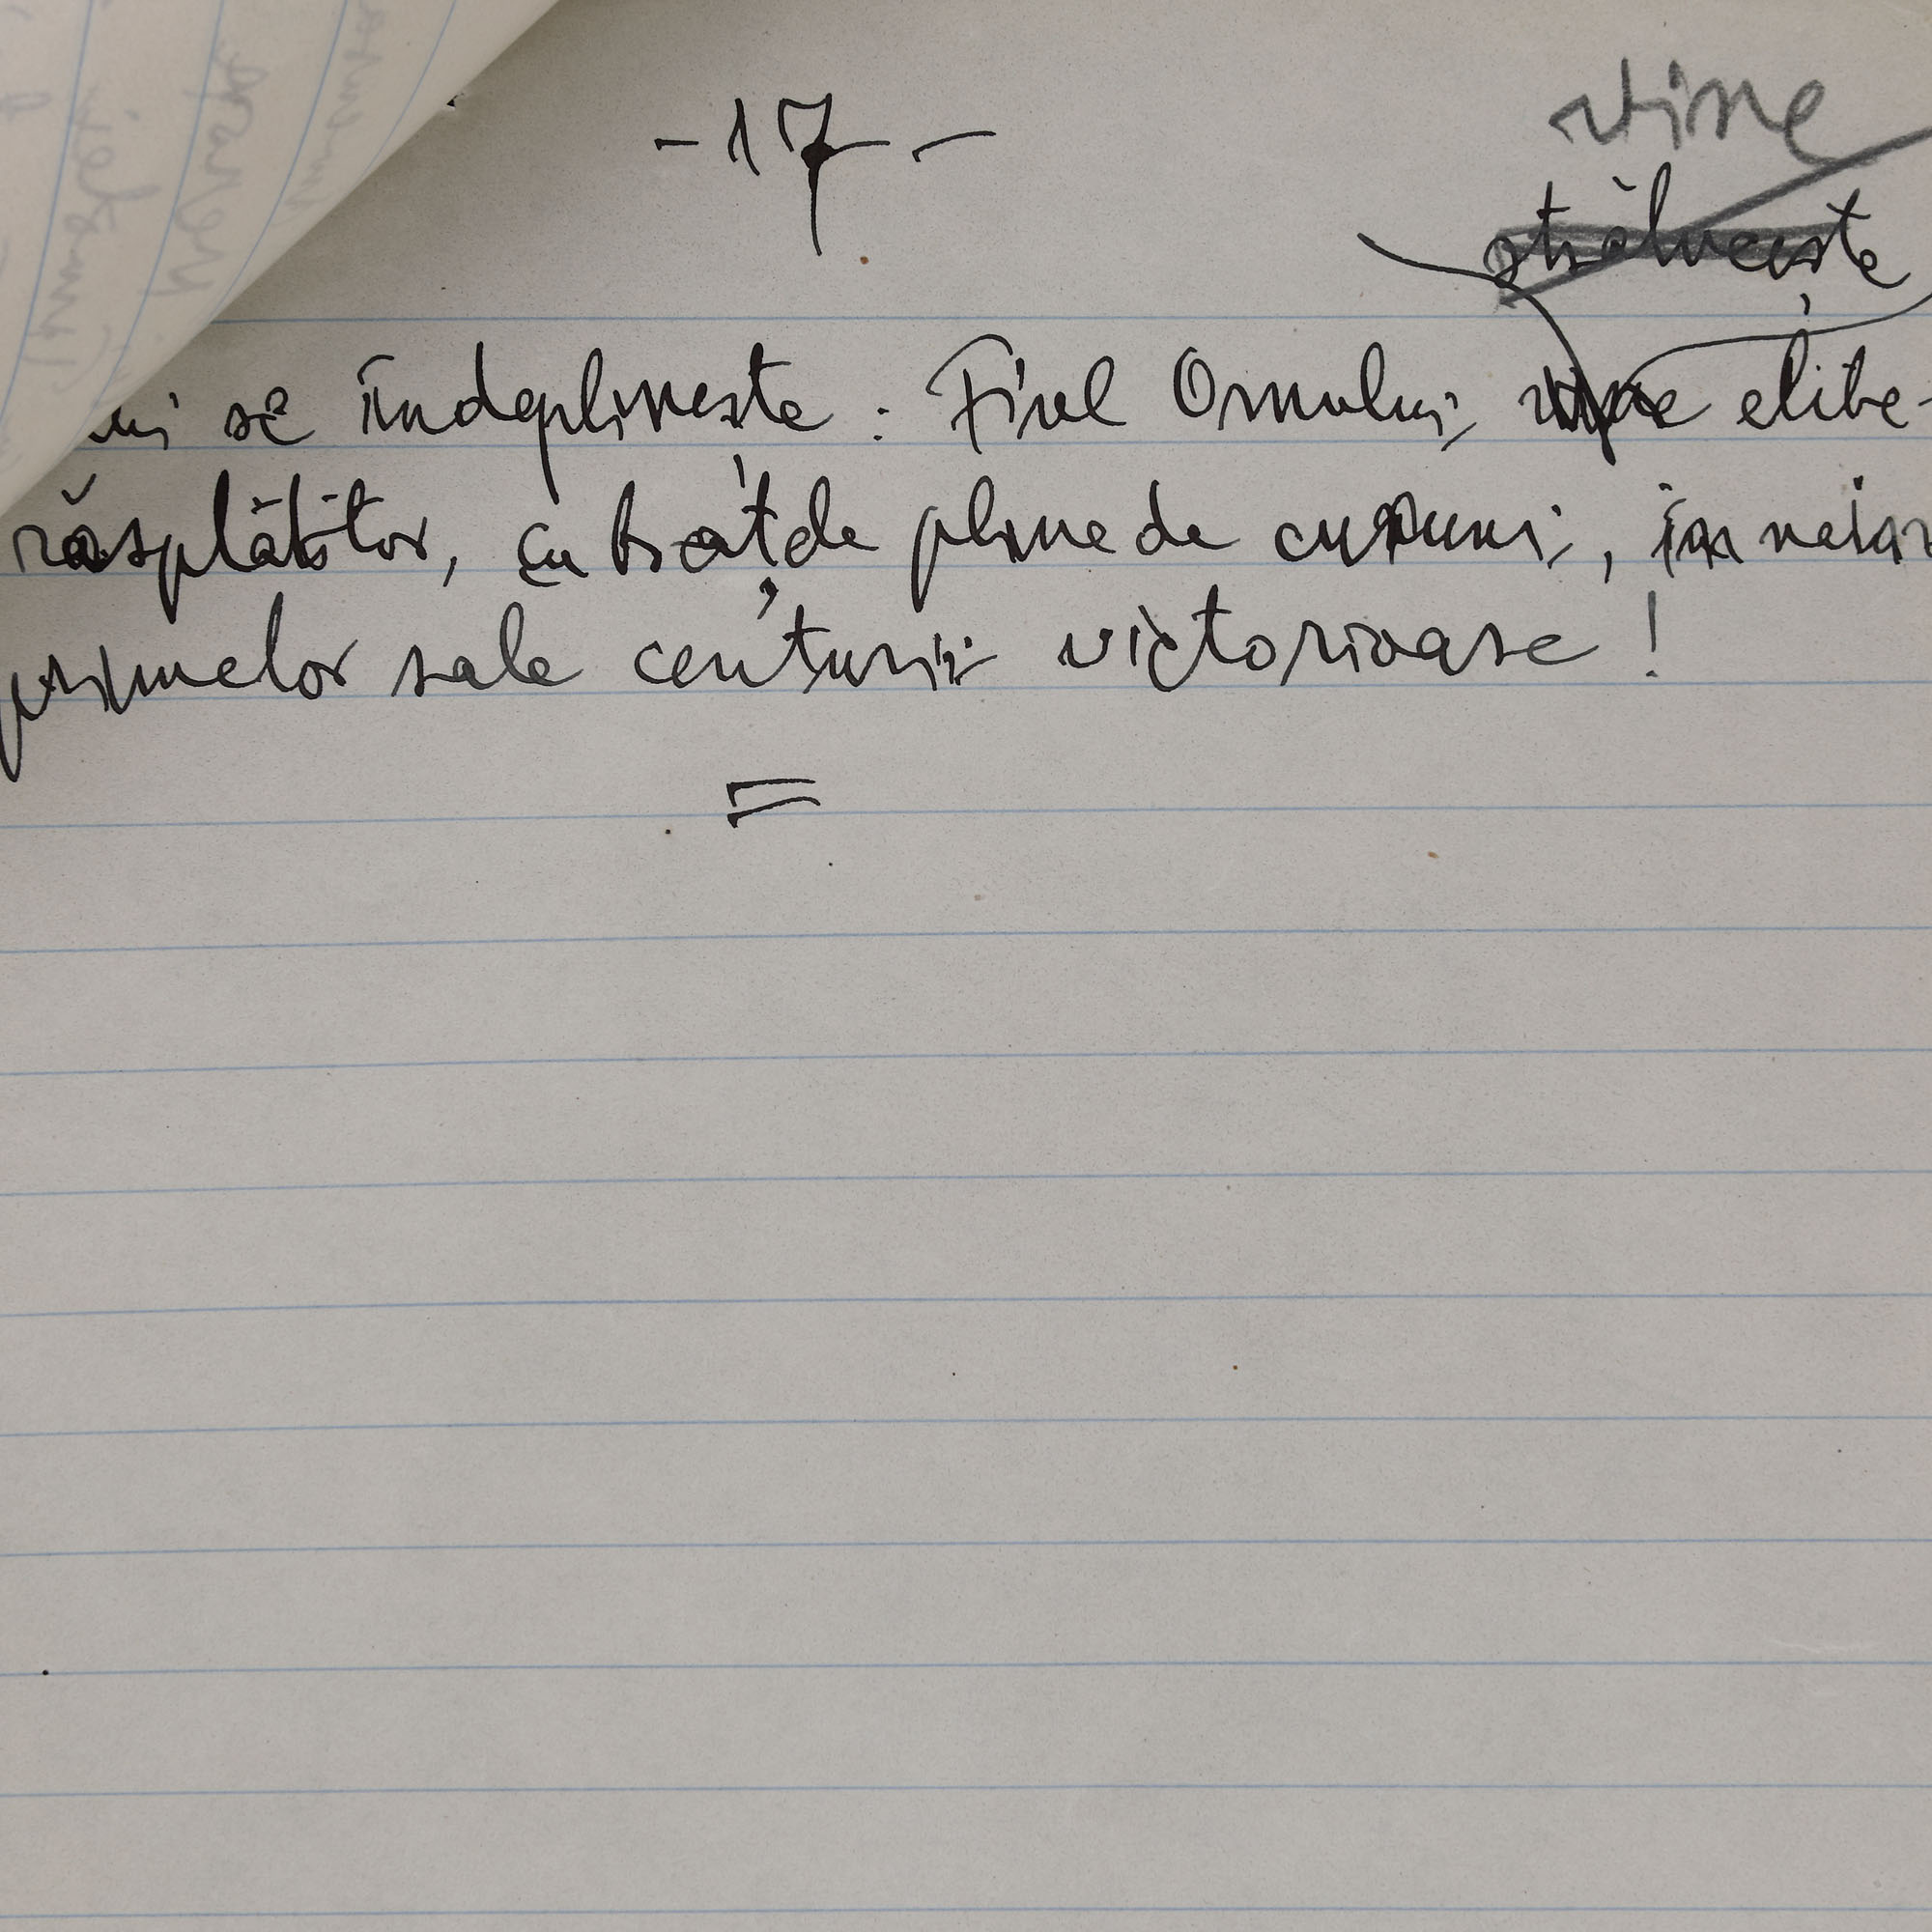 - 17 -
vine
strălucește
se îndeplinește : Fiul Omului, vine elibe-
răsplătitor, cu brațele pline de cununi, în
primelor sale centurii victorioase !